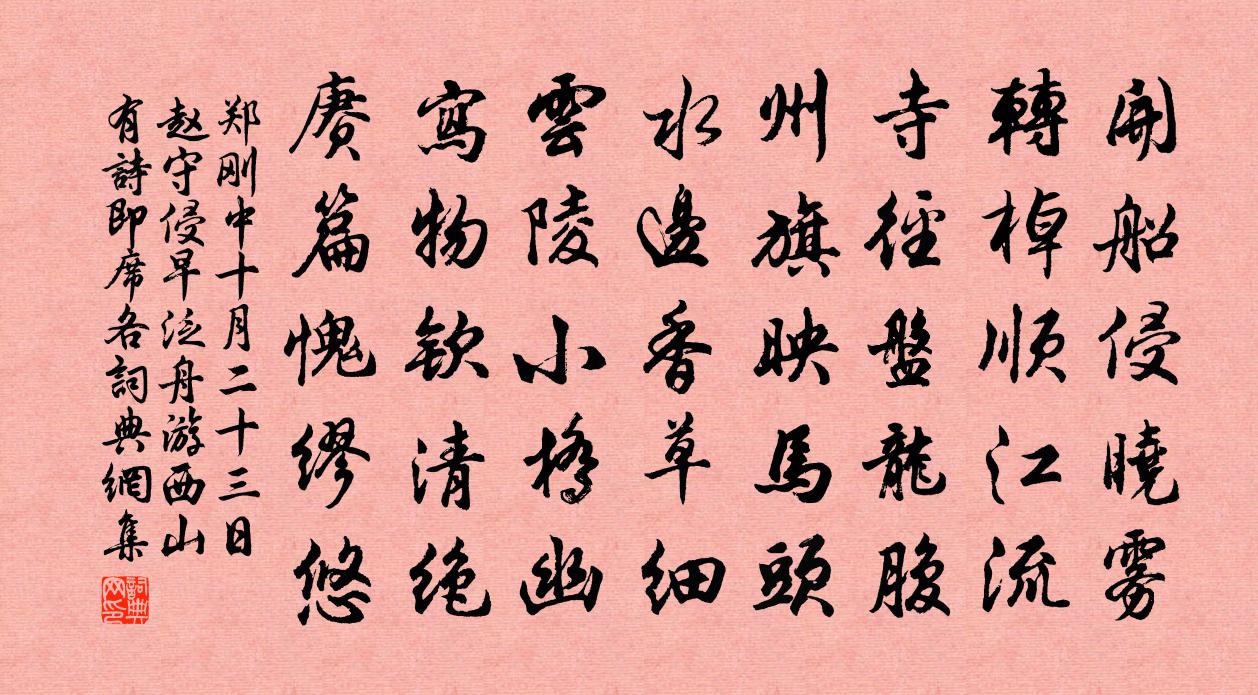 開船侵曉霧
轉棹順江流
寺徑盤龍腹
州旗映馬頭
水邊香草細
雲陵小橋幽
寫物欽清絶
賡篇愧繆悠
郑刚中十月二十三日
赵守侵早泛舟游西山
有詩即席各詞典網集
詞典
网印